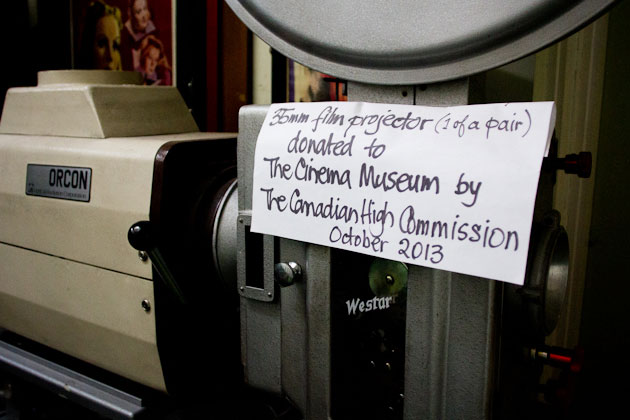 ORCON
35mm film projector (1 of a pair)
donated to
The Cinema Museum by
The Canadian High Commission
October 2013
Westar